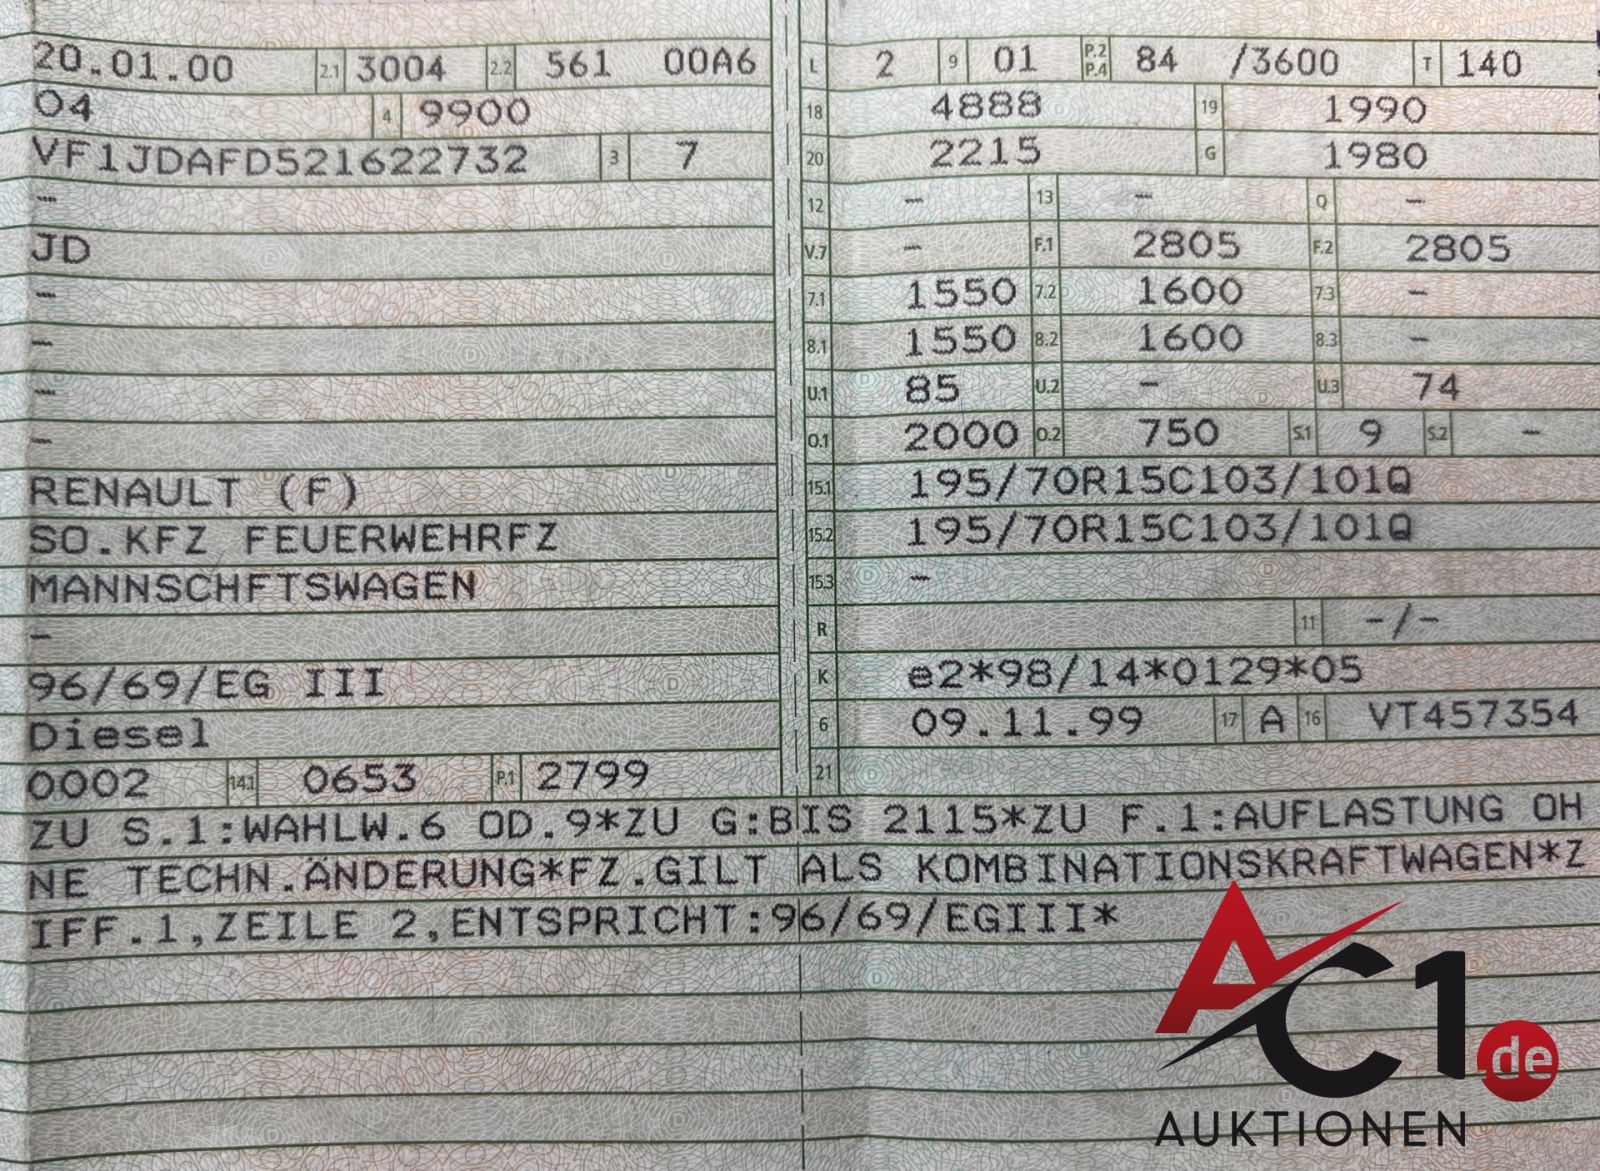 20.01.00 2.1 3004 2.2 561 00A6
04 4 9900
VF1JDAFD521622732 3 7
-
JD
-
-
-
-
RENAULT (F)
SO.KFZ FEUERWEHRFZ
MANNSCHFTSWAGEN
-
96/69/EG III
Diesel
0002 14.1 0653 P.1 2799
L 2 9 01 P.2 P.4 84 /3600 T 140
18 4888 19 1990
20 2215 G 1980
12 - 13 - Q -
V.7 - F.1 2805 F.2 2805
7.1 1550 7.2 1600 7.3 -
8.1 1550 8.2 1600 8.3 -
U.1 85 U.2 - U.3 74
O.1 2000 O.2 750 S.1 9 S.2 -
15.1 195/70R15C103/101Q
15.2 195/70R15C103/101Q
15.3 -
R 11 -/-
K e2*98/14*0129*05
6 09.11.99 17 A 16 VT457354
21
ZU S.1:WAHLW.6 OD.9*ZU G:BIS 2115*ZU F.1:AUFLASTUNG OH
NE TECHN.ÄNDERUNG*FZ.GILT ALS KOMBINATIONSKRAFTWAGEN*Z
IFF.1,ZEILE 2,ENTSPRICHT:96/69/EGIII*
AC1.de
AUKTIONEN